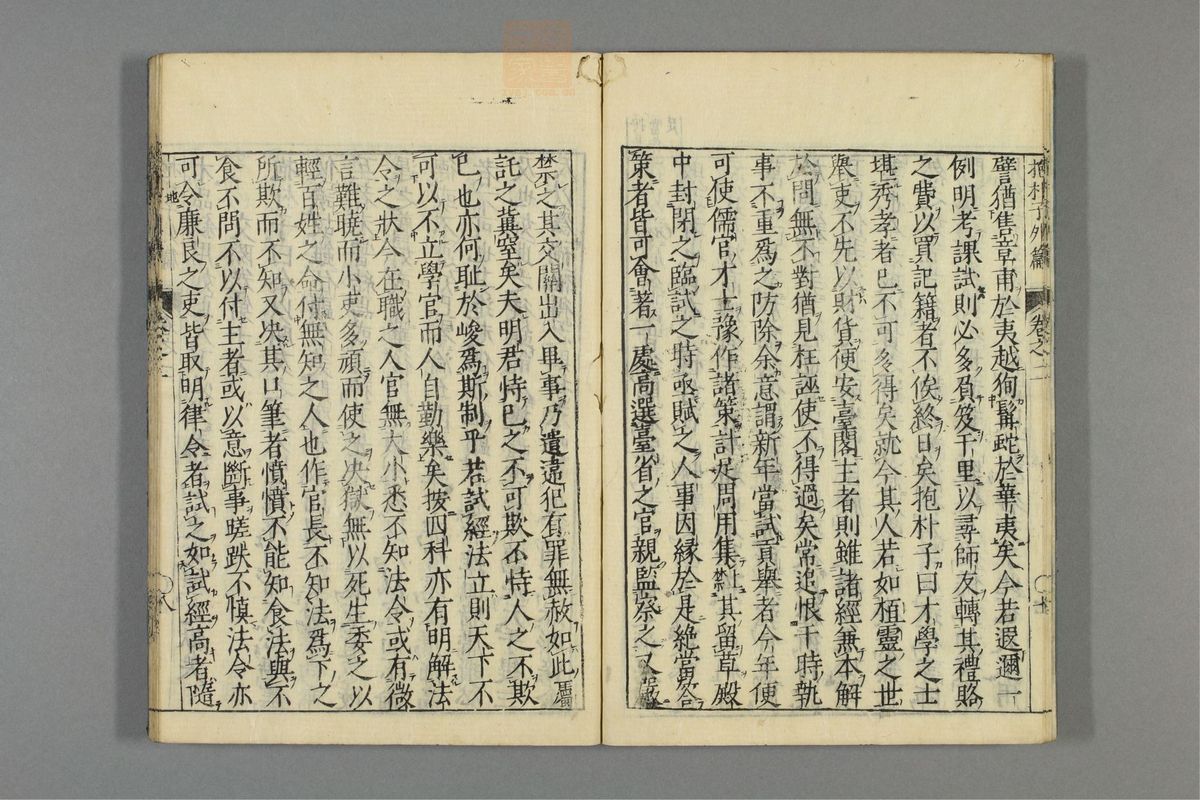 抱朴子外篇　卷之二
譬猶售章甫於夷越徇髯蛇於華夷矣今若遐邇一
例明考課試則必多負笈千里以尋師友轉其禮賂
之費以買記籍者不俟終日矣抱朴子曰才學之士
堪秀孝者已不可多得矣就今其人若如桓靈之世
舉吏不先以財貨便安臺閣主者則雖諸經無本解
於問無不對猶見枉誣使不得過矣常追恨于時執
事不重爲之防除余意謂新年當試貢舉者今年便
可使儒官才士豫作諸策計足周用集禁其留草殿
中封閉之臨試之時亟賦之人事因緣於是絶當答
策者皆可會著一處高選臺省之官親監察之又嚴
禁之其交關出入畢事乃遣違犯有罪無赦如此屬
託之冀窒矣夫明君恃已之不可欺不恃人之不欺
已也亦何耻於峻爲斯制乎若試經法立則天下不
可以不立學官而人自勤樂矣按四科亦有明解法
令之狀今在職之人官無大小悉不知法令或有微
言難曉而小吏多頑而使之决獄無以死生委之以
輕百姓之命付無知之人也作官長不知法爲下之
所欺而不知又决其口筆者憤憤不能知食法與不
食不問不以付主者或以意斷事蹉跌不慎法令亦
可令廉良之吏皆取明律令者試之如試經高者隨
地
八